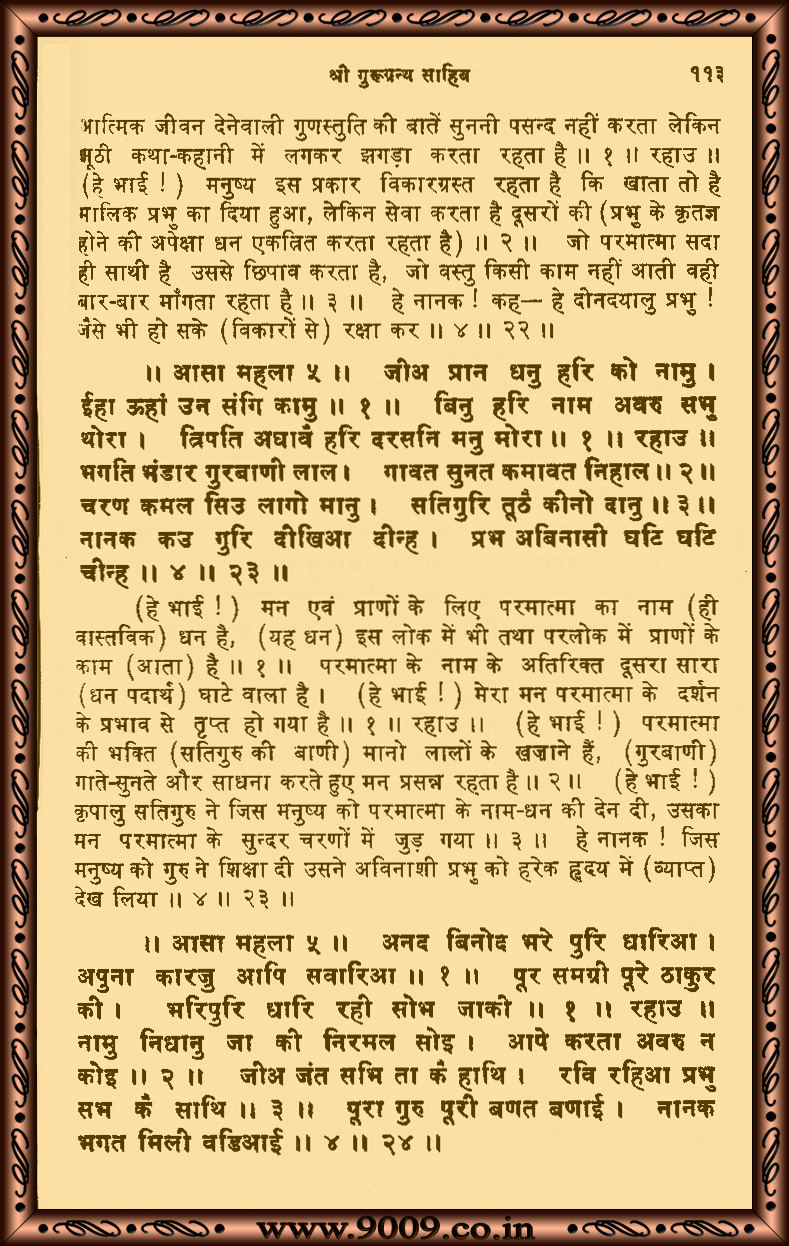 श्री गुरूग्रन्थ साहिब ११३
आत्मिक जीवन देनेवाली गुणस्तुति की बातें सुननी पसन्द नहीं करता लेकिन
झूठी कथा-कहानी में लगकर झगड़ा करता रहता है ॥ १ ॥ रहाउ ॥
(हे भाई !) मनुष्य इस प्रकार विकारग्रस्त रहता है कि खाता तो है
मालिक प्रभु का दिया हुआ, लेकिन सेवा करता है दूसरों की (प्रभु के कृतज्ञ
होने की अपेक्षा धन एकत्रित करता रहता है) ॥ २ ॥ जो परमात्मा सदा
ही साथी है उससे छिपाव करता है, जो वस्तु किसी काम नहीं आती वही
बार-बार माँगता रहता है ॥ ३ ॥ हे नानक ! कह— हे दीनदयालु प्रभु !
जैसे भी हो सके (विकारों से) रक्षा कर ॥ ४ ॥ २२ ॥
॥ आसा महला ५ ॥ जीअ प्रान धनु हरि को नामु ।
ईहा ऊहां उन संगि कामु ॥ १ ॥ बिनु हरि नाम अवरु सभु
थोरा । त्रिपति अघावै हरि दरसनि मनु मोरा ॥ १ ॥ रहाउ ॥
भगति भंडार गुरबाणी लाल । गावत सुनत कमावत निहाल ॥ २ ॥
चरण कमल सिउ लागो मानु । सतिगुरि तूठै कीनो दानु ॥ ३ ॥
नानक कउ गुरि दीखिआ दीन्ह । प्रभ अबिनासी घटि घटि
चीन्ह ॥ ४ ॥ २३ ॥
(हे भाई !) मन एवं प्राणों के लिए परमात्मा का नाम (ही
वास्तविक) धन है, (यह धन) इस लोक में भी तथा परलोक में प्राणों के
काम (आता) है ॥ १ ॥ परमात्मा के नाम के अतिरिक्त दूसरा सारा
(धन पदार्थ) घाटे वाला है । (हे भाई !) मेरा मन परमात्मा के दर्शन
के प्रभाव से तृप्त हो गया है ॥ १ ॥ रहाउ ॥ (हे भाई !) परमात्मा
की भक्ति (सतिगुरु की बाणी) मानो लालों के खज़ाने हैं, (गुरबाणी)
गाते-सुनते और साधना करते हुए मन प्रसन्न रहता है ॥ २ ॥ (हे भाई !)
कृपालु सतिगुरु ने जिस मनुष्य को परमात्मा के नाम-धन की देन दी, उसका
मन परमात्मा के सुन्दर चरणों में जुड़ गया ॥ ३ ॥ हे नानक ! जिस
मनुष्य को गुरु ने शिक्षा दी उसने अविनाशी प्रभु को हरेक हृदय में (व्याप्त)
देख लिया ॥ ४ ॥ २३ ॥
॥ आसा महला ५ ॥ अनद बिनोद भरे पुरि धारिआ ।
अपुना कारजु आपि सवारिआ ॥ १ ॥ पूर समग्री पूरे ठाकुर
की । भरिपुरि धारि रही सोभ जाकी ॥ १ ॥ रहाउ ॥
नामु निधानु जा की निरमल सोइ । आपे करता अवरु न
कोइ ॥ २ ॥ जीअ जंत सभि ता कै हाथि । रवि रहिआ प्रभु
सभ कै साथि ॥ ३ ॥ पूरा गुरु पूरी बणत बणाई । नानक
भगत मिली वडिआई ॥ ४ ॥ २४ ॥
www.9009.co.in